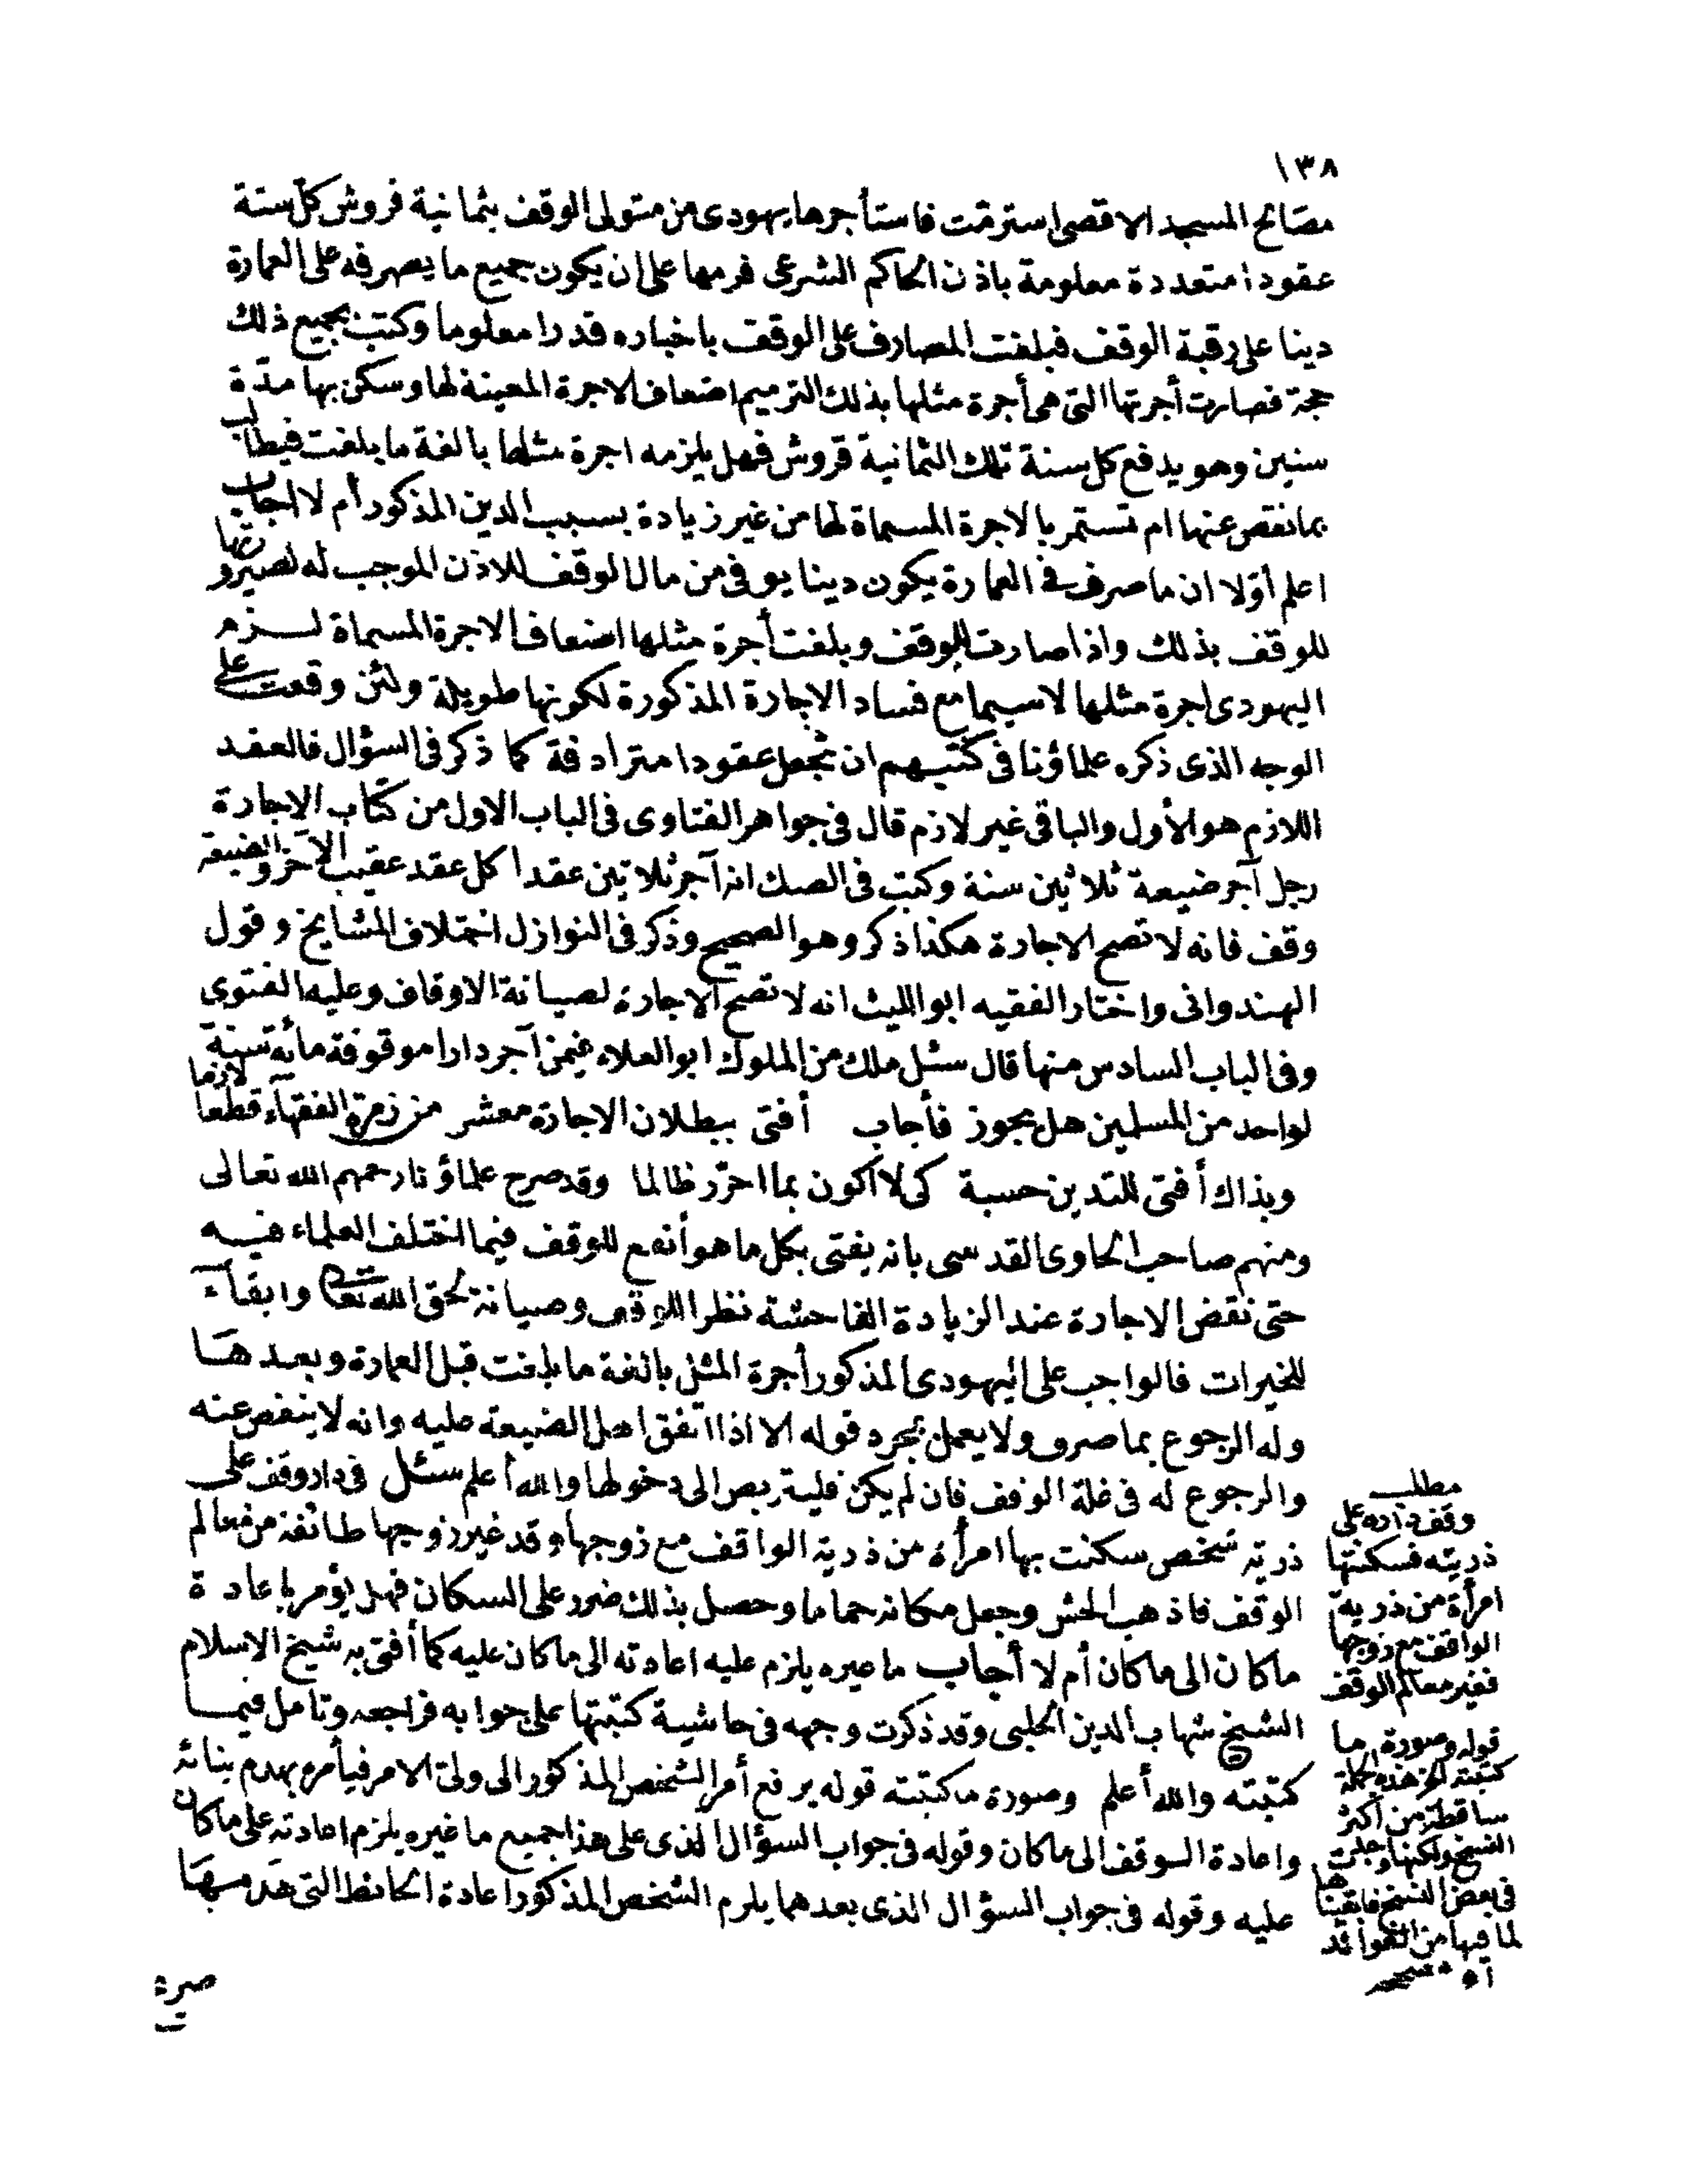 ١٣٨
مصالح المسجد الاقصى استرمّت فاستأجرها يهودى من متولى الوقف بثمانية قروش كلّ سنة
عقودا متعددة معلومة باذن الحاكم الشرعى فرمها على ان يكون جميع ما يصرفه على العمارة
دينا على رقبة الوقف فبلغت المصارف على الوقف باخباره قدرا معلوما وكتب بجميع ذلك
حجة فصارت أجرتها التى هى أجرة مثلها بذلك الترميم اضعاف الاجرة المعينة لها وسكن بها مدّة
سنين وهو يدفع كل سنة تلك الثمانية قروش فهل يلزمه اجرة مثلها بالغة ما بلغت فيطالب
بما نقص عنها ام تستمر بالاجرة المسماة لها من غير زيادة بسبب الدين المذكور أم لا اجاب
اعلم أوّلا ان ما صرف فى العمارة يكون دينا يوفى من مال الوقف للاذن الموجب له لصيرورتها
للوقف بذلك واذا صارت للوقف وبلغت أجرة مثلها اضعاف الاجرة المسماة لـزم
اليهودى اجرة مثلها لاسيما مع فساد الاجارة المذكورة لكونها طويلة ولئن وقعت على
الوجه الذى ذكره علماؤنا فى كتبهم ان تجعل عقودا مترادفة كما ذكر فى السؤال فالعقد
اللازم هو الأول والباقى غير لازم قال فى جواهر الفتاوى فى الباب الاول من كتاب الاجارة
رجل آجر ضيعة ثلاثين سنة وكتب فى الصك انه آجر ثلاثين عقدا كل عقد عقيب الآخر والضيعة
وقف فانه لا تصح الاجارة هكذا ذكر وهو الصحيح وذكر فى النوازل اختلاف المشايخ وقول
الهندوانى واختار الفقيه ابو الليث انه لا تصح الاجارة لصيانة الاوقاف وعليه الفتوى
وفى الباب السادس منها قال سئل ملك من الملوك ابو العلاء عمن آجر دارا موقوفة مأية سنة
لواحد من المسلمين هل يجوز فأجاب أفتى ببطلان الاجارة معشر من زمرة الفقهآء قطعا لازما
وبذاك أفتى للتدين حسبة كى لا اكون بما احرّر ظالما وقد صرح علماؤنا رحمهم الله تعالى
ومنهم صاحب الحاوى القدسى بانه يفتى بكل ما هو أنفع للوقف فيما اختلف العلماء فيه
حتى نقض الاجارة عند الزيادة الفاحشة نظرا للوقف وصيانة لحق الله تعالى وابقآء
للخيرات فالواجب على اليهودى المذكور أجرة المثل بالغة ما بلغت قبل العمارة وبعدهَا
وله الرجوع بما صرف ولا يعمل بمجرد قوله الا اذا اتفق اهل الضيعة عليه وانه لا ينقص عنه
والرجوع له فى غلة الوقف فان لم يكن فليتربص الى دخولها والله أعلم سئل فى دار وقف على
ذريته شخص سكنت بها امرأة من ذرية الواقف مع زوجها وقد غير زوجها طائفة من معالم
الوقف فاذهب الحش وجعل مكانه حماما وحصل بذلك ضرر على السكان فهل يؤمر باعادة
ما كان الى ما كان أم لا أجاب ما غيره يلزم عليه اعادته الى ما كان عليه كما أفتى به شيخ الاسلام
الشيخ شهاب الدين الحلبى وقد ذكرت وجهه فى حاشية كتبتها على جوابه فراجعه وتامل فيما
كتبته والله أعلم وصورة ما كتبته قوله يرفع أمر الشخص المذكور الى ولىّ الامر فيأمره بهدم بنائه
واعادة الوقف الى ما كان وقوله فى جواب السؤال الذى على هذا جميع ما غيره يلزم اعادته على ما كان
عليه وقوله فى جواب السؤال الذى بعدهما يلزم الشخص المذكور اعادة الحائط التى هدمهَا
صرة
مطلب
وقف داره على
ذريته فسكنتها
امرأة من ذرية
الواقف مع زوجها
فغير معالم الوقف
قوله وصورة ما
كتبته الخ هذه الجملة
ساقطة من أكثر
النسخ ولكنها وجدت
فى بعض النسخ فابقيناها
لما فيها من الفوائد
اه مصححه